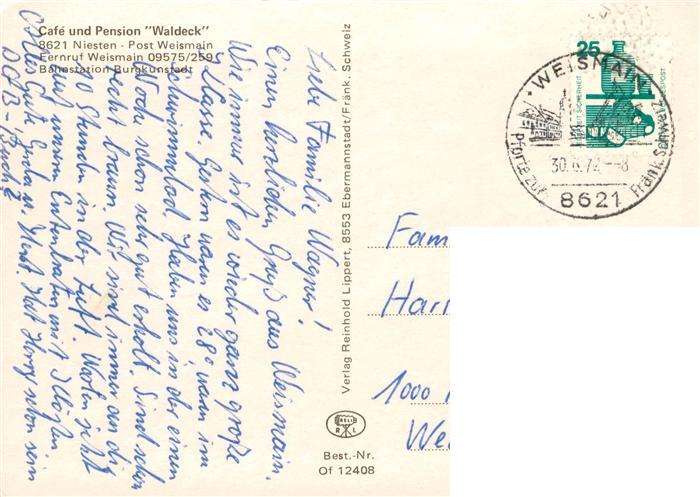 Café und Pension "Waldeck"
8621 Niesten - Post Weismain
Fernruf Weismain 09575/259
Bahnstation Burgkunstadt
Liebe Familie Wagner!
Einen herzlichen Gruß aus Weismain.
Wie immer ist es wieder ganz große
Klasse. Gestern waren es 28° warm im
Schwimmbad. Haben uns in der einen
Woche schon sehr gut erholt. Sind schon
recht braun. Wir sind immer an die
10 Stunden in der Luft. Warten jetzt
auf unser Entenbraten mit Klößen
Alles Gute Gerda u. Horst. Hat Harry schon sein
Verlag Reinhold Lippert, 8553 Ebermannstadt/Fränk. Schweiz
R L
Best.-Nr.
Of 12408
25
WEISMAIN
Pforte zur Fränk. Schweiz
30.6.72 - 8
8621
Fam
Harr
1000
We